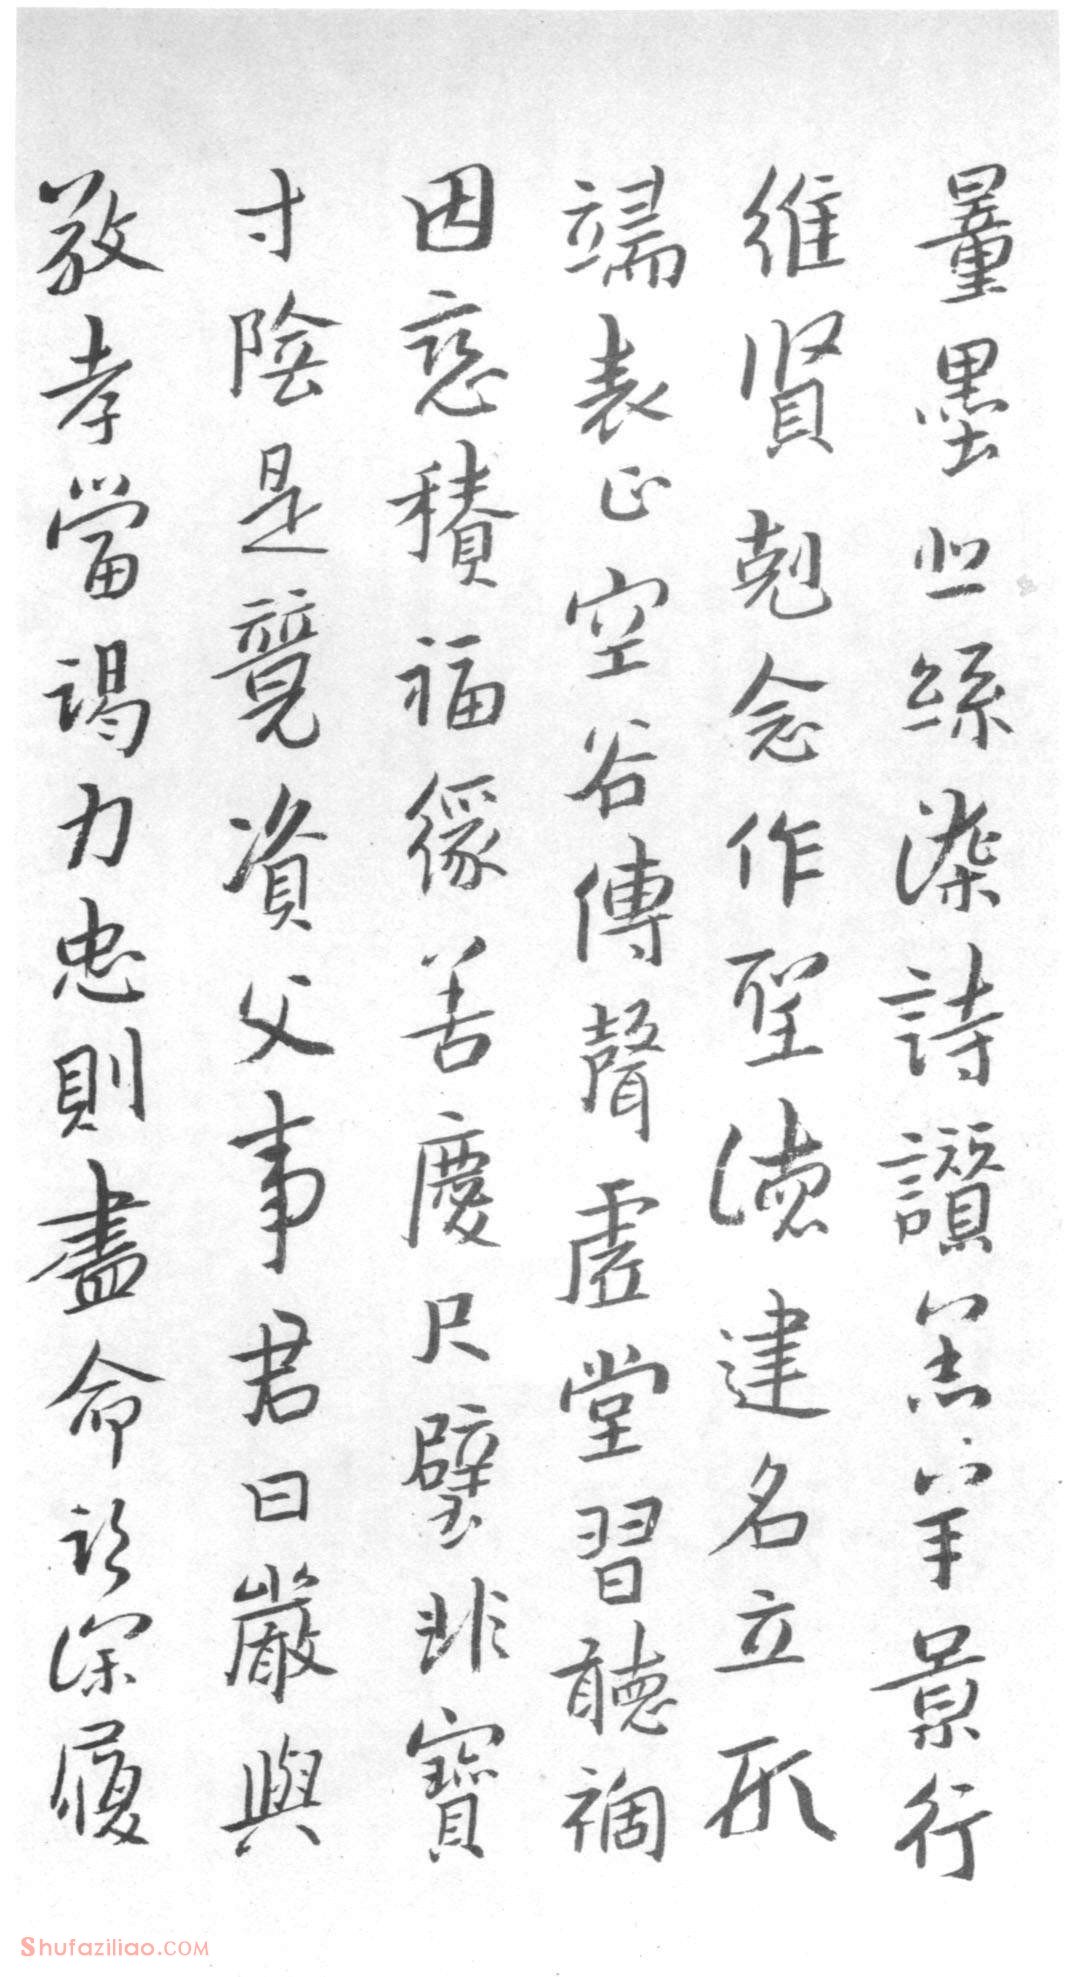 量墨悲絲染詩讃羔羊景行
維賢剋念作聖徳建名立形
端表正空谷傳聲虛堂習聽禍
因惡積福緣善慶尺璧非寶
寸陰是競資父事君曰嚴與
敬孝當竭力忠則盡命臨深履
Shufaziliao.COM